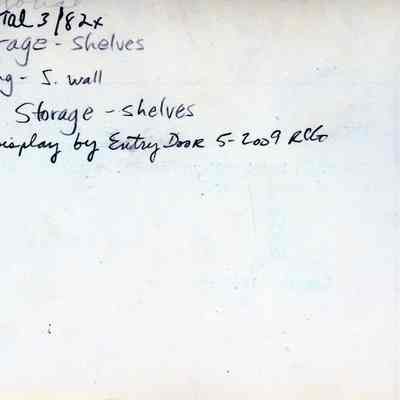 tal 3/82x
rage - shelves
g - S. wall
Storage - shelves
isplay by Entry Door 5-2009 RCG